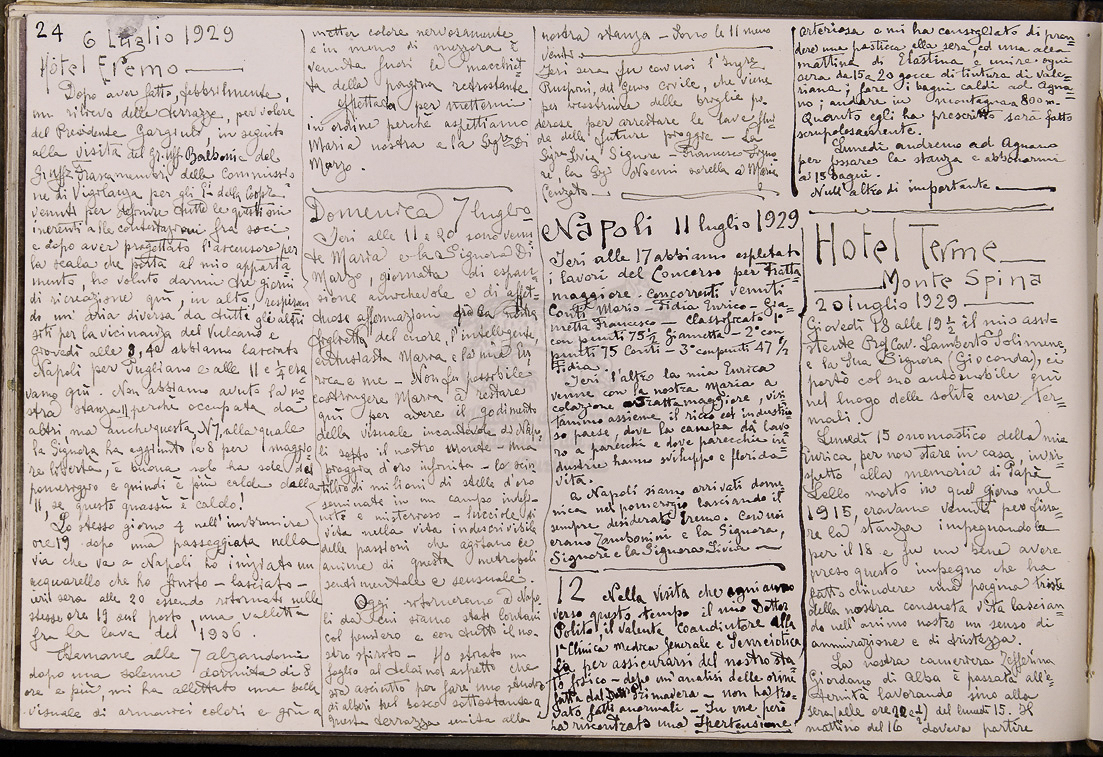 24 6 Luglio 1929
Hotel Eremo
Dopo aver fatto, febbrilmente,
un rilievo delle terrazze, per volere
del Presidente Gargiulo, in seguito
alla visita del Gr. Uff. Balboni e del
della Commissio=
ne di Vigilanza per gli
venuti per definire tutte le questioni
inerenti alle contestazioni fra soci,
e dopo aver progettato l'ascensore per
la scala che porta al mio apparta=
mento, ho voluto darmi tre giorni
di ricreazione quì, in alto, respiran=
do un'aria diversa da tutti gli altri
siti per la vicinanza del Vulcano e
giovedì alle 9,40 abbiamo lasciato
Napoli per Pugliano e alle 11 e ½ era
vamo quì. Non abbiamo avuto la no=
stra stanza 11 perchè occupata da
altri, ma anche questa, N7, alla quale
la Signora ha aggiunto per maggio=
re libertà, è buona solo ha sole del
pomeriggio e quindi è più calda della
11, se questo quassù è caldo!
Lo stesso giorno 4 nell'imbrunire
ore 19 dopo una passeggiata nella
via che va a Napoli ho iniziato un
acquarello che ho finito - lasciato -
ieri sera alle 20 essendo ritornato nelle
stesse ore 19 sul posto, una valletta
fra la lava del 1906.
Stamane alle 7 alzandomi
dopo una solenne dormita di 8
ore e più, mi ha allettato una bella
visuale di armonici colori e giù a
metter colore nervosamente
e in meno di mezzora è
venuta fuori la macchiet=
ta della pagina retrostante.
per mettermi
in ordine perchè aspettiamo
Maria nostra e la Sigra Di
Marzo.
Domenica 7 luglio
Ieri alle 11 e 20 sono venu
te Maria e la Signora Di
Marzo, giornata di espan
sione amichevole e di affet=
tuose affermazioni fra la nostra
figlietta del cuore, l'intelligente
entusiasta Marra e la mia En
rica e me - Non fu possibile
costringere Marra a restare
quì per avere il godimento
della visuale incantevole di Nap
li sotto il nostro mondo - una
pioggia d'oro infinita - lo scin
tillìo di milioni di stelle d'oro
seminate in un campo indefi=
nito e misterioso - lucciole di
vita nella vita indescrivibile
delle passioni che agitano le
anime di questa metropoli
sentimentale e sensuale.
Oggi ritorneremo a Napo
li da cui siamo stati lontani
col pensiero e con tutto il no=
stro spirito - Ho
foglio al telaino, aspetto che
sia asciutto per fare uno studio
di alberi nel bosco sottostante a
questa terrazza unita alla
nostra stanza - Sono le 11 meno
venti -
Ieri sera fu con noi l'Ingre
Rusponi, del Genio Civile, che viene
per costruire delle briglie po=
derose per arrestare le lave flui
de delle future piogge - La
Sigra Livia Signore - Francesco Signo
re la Sigra Noemi sorella a Maria
Cenzato.
Napoli 11 luglio 1929
Ieri alle 17 abbiamo espletato
i lavori del Concorso per Fratta
maggiore. Concorrenti venuti
Conti Mario - Fidia Enrico - Gia=
metta Francesco - Classificato 1°
con punti 75 ½ Giametta - 2° con
punti 75 Conti - 3° con punti 47 ½
Fidia.
Ieri l'altro la mia Enrica
venne con la nostra Maria a
colazione a Frattamaggiore, visi
tammo assieme il ricco ed industrio
so paese, dove la canapa dà lavo
ro a parecchi e dove parecchie in
dustrie hanno sviluppo e florida=
vita.
A Napoli siamo arrivati dome
nica nel pomeriggio lasciando il
sempre desiderato Eremo. Con noi
erano Zamboni e la Signora,
Signore e la Signora Livia -
12 Nella visita che ogni anno
verso questo tempo il mio Dottor
Polito, il valente coadiutore alla
1a Clinica Medica Generale e Semeiotica,
fa per assicurarsi del nostro sta
to fisico - dopo un'analisi delle orine
fatta dal primavera - non ha tro=
vato fatti anormali - In me però
ha riscontrato una Ipertensione
arteriosa e mi ha consigliato di pren
dere una pasticca alla sera, ed una alla
mattina di Elastina e unire ogni
sera da 15 a 20 gocce di tintura di vale=
riana; fare i bagni caldi ad Agna=
no; andare in montagna a 800 m.
Quanto egli ha prescritto sarà fatto
scrupolosamente.
Lunedì andremo ad Agnano
per fissare la stanza e abbonarmi
a 15 bagni.
Null'altro di importante -
Hotel Terme
Monte Spina
20 luglio 1929
Giovedì 18 alle 19 ½ il mio assi=
stente Prof Cav. Lamberto Solimene,
e la sua Signora (Gioconda), ci
portò col suo automobile quì
nel luogo delle solite cure ter=
mali.
Lunedì 15 onomastico della mia
Enrica, per non stare in casa, in ri=
spetto alla memoria di Papà
Lello morto in quel giorno nel
1915, eravamo venuti per fissa=
re la stanza impegnandola
per il 18 e fu un bene avere
preso questo impegno che ha
fatto chiudere una pagina triste
della nostra consueta vita lascian=
do nell'animo nostro un senso di
ammirazione e di tristezza.
La nostra cameriera Zefferina
Giordano di Alba è passata all'e=
ternità lavorando sino alla
sera (alle ore del lunedì 15. Il
mattino del 16 doveva partire